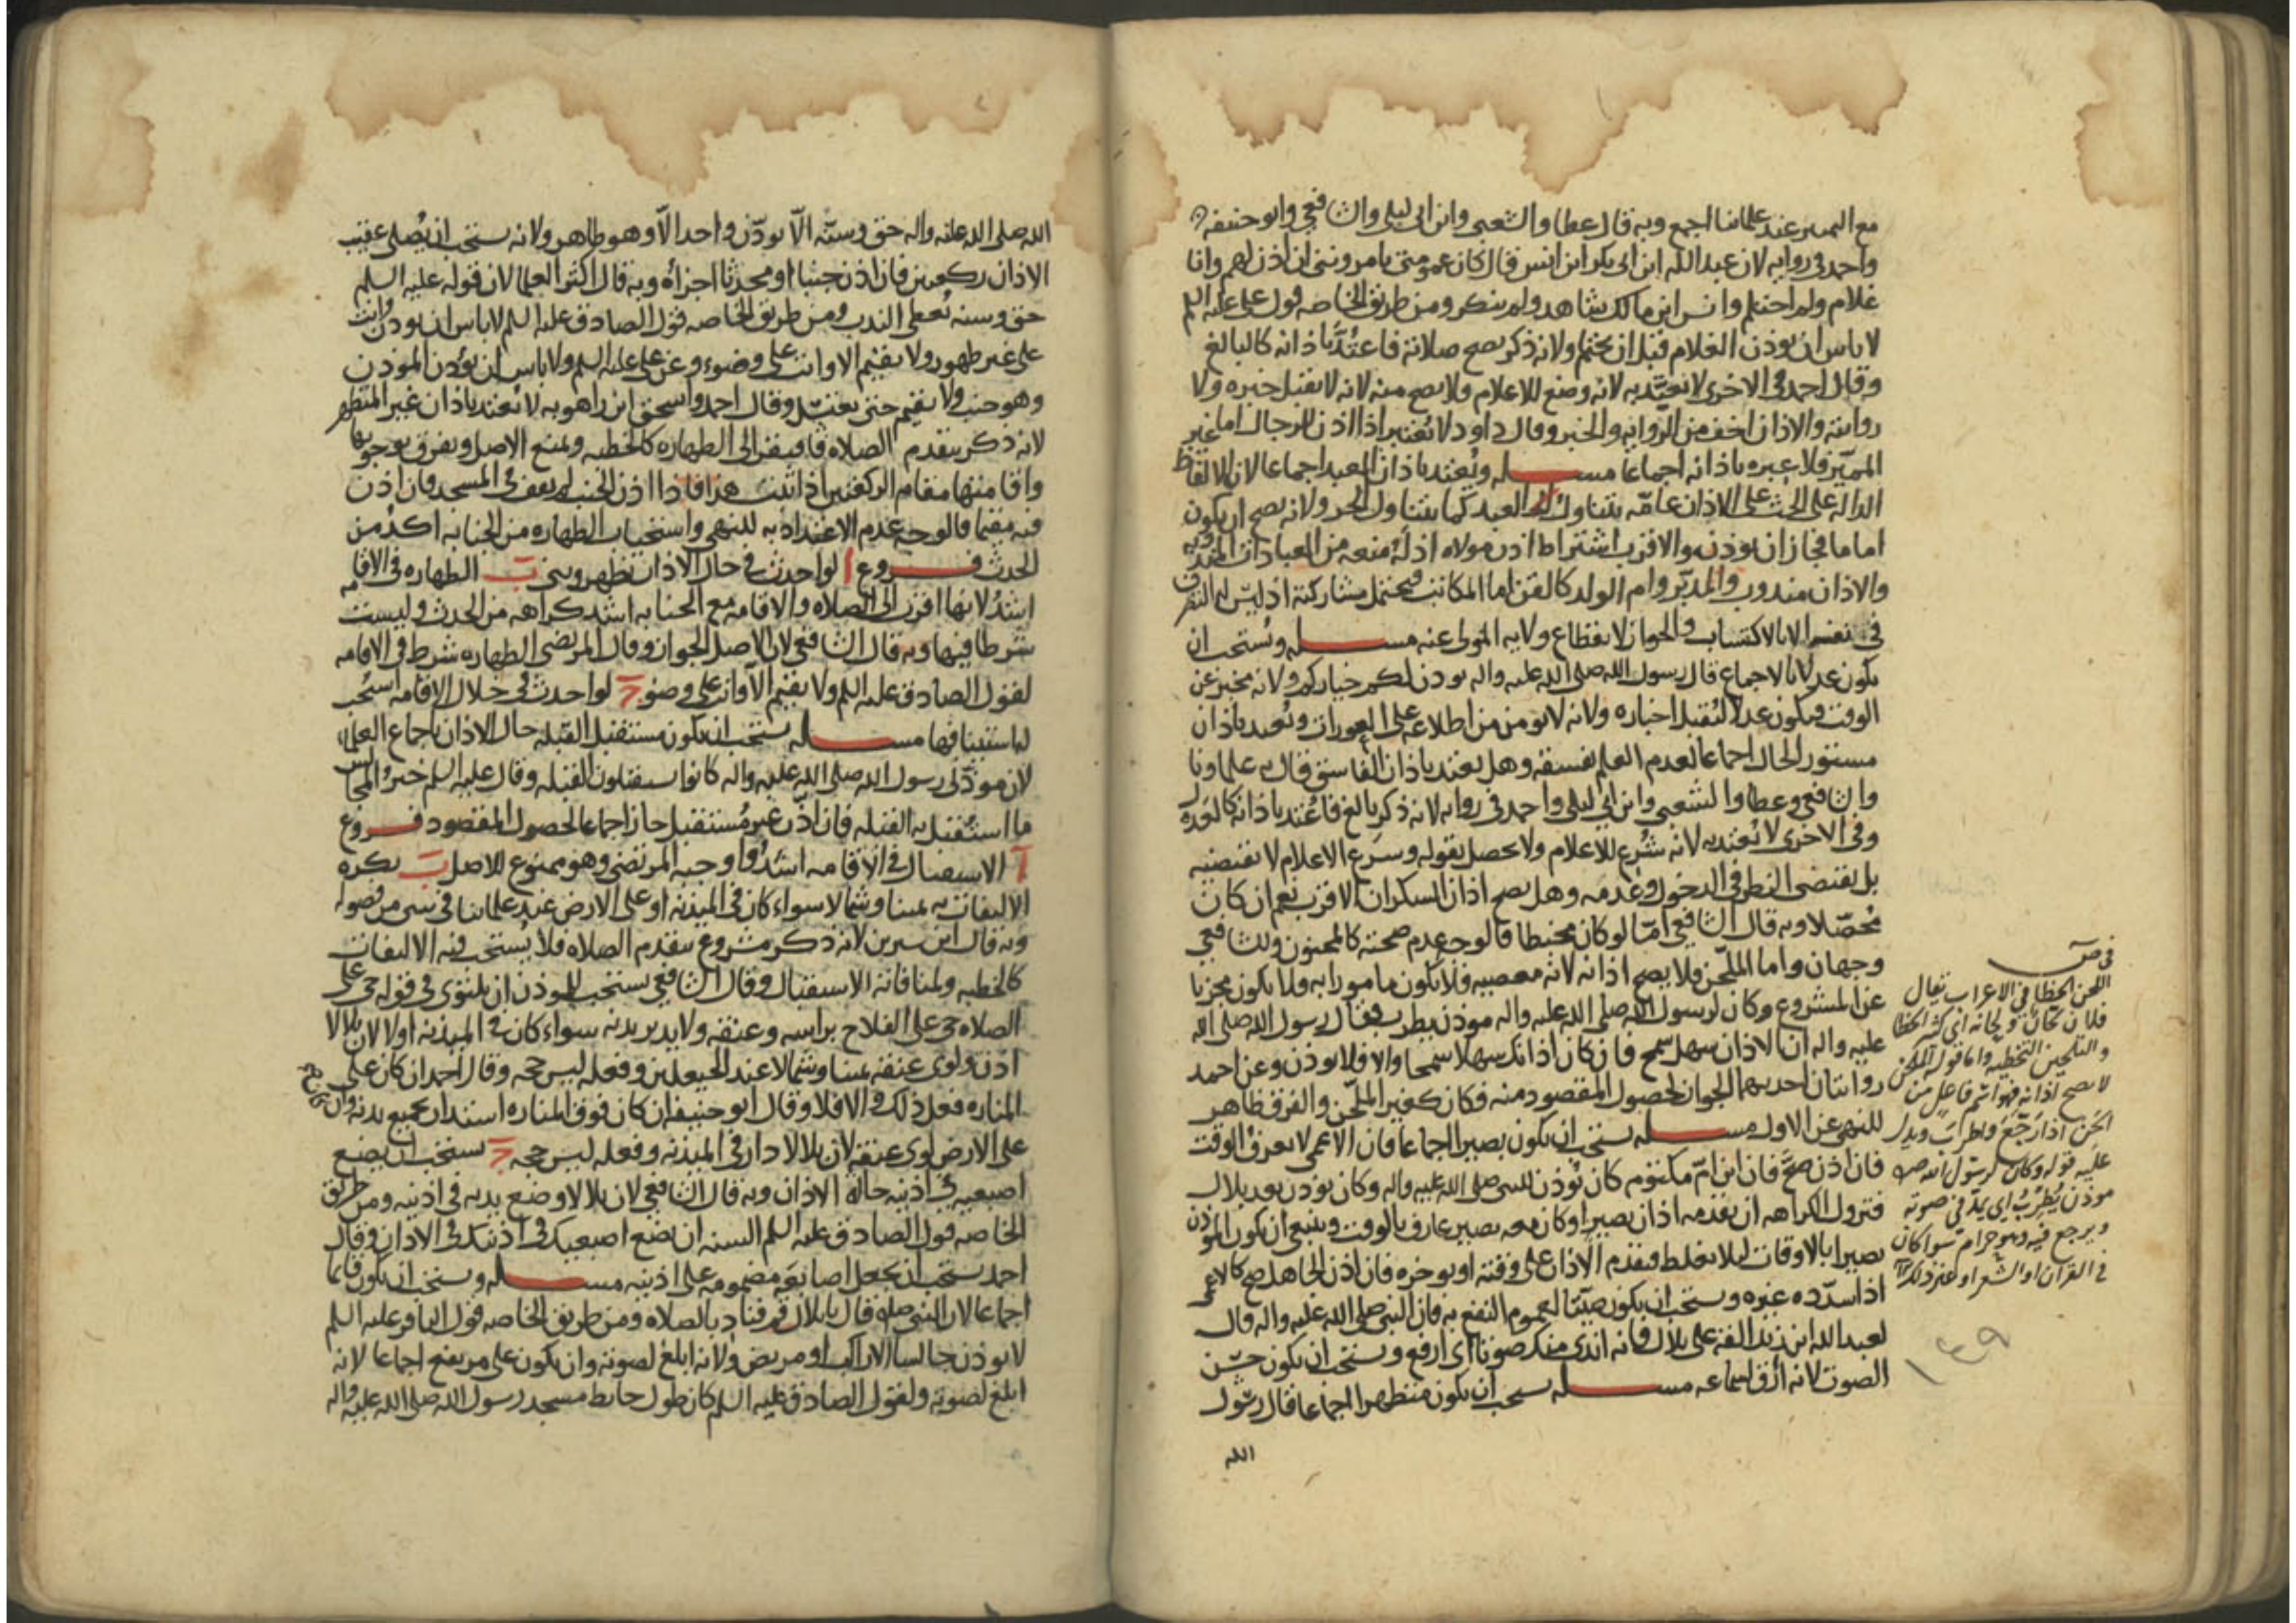 مع التميز عند علمائنا اجمع وبه قال عطا والشعبي وابن ابي ليلى والشافعي وابو حنيفه
واحمد في روايه لان عبدالله ابن ابي بكر ابن انس قال كان عمومتي يامرونني ان اذن لهم وانا
غلام ولم احتلم وانس ابن مالك شاهد ولم ينكر ومن طريق الخاصه قول علي عليه السلم
لا باس ان يوذن الغلام قبل ان يحتلم ولانه ذكر يصح صلاته فاعتُدَّ باذانه كالبالغ
وقال احمد في الاخرى لا يعتد به لانه وضع للاعلام ولا يصح منه لانه لا يقبل خبره ولا
روايته والاذان اخف من الروايه والخبر وقال داود لا يعتبر اذا اذن للرجال اما غير
المميز فلا عبره باذانه اجماعا مسله ويُعتد باذان العبد اجماعا لان الالفاظ
الداله على الحث على الاذان عامّه يتناول العبد كما يتناول الحر ولانه يصح ان يكون
اماما فجاز ان يوذن والاقرب اشتراط اذن مولاه اذ له منعه من العبادات المندوبه
والاذان مندوب والمدبّر وام الولد كالقن اما المكاتب فيحتمل مشاركته اذ ليس له التصرف
في نفسه الا بالاكتساب والجواز لانقطاع ولايه المولى عنه مسله ويُستحب ان
يكون عدلا بالاجماع قال رسول الله صلى الله عليه واله يوذن لكم خياركم ولانه مخبر عن
الوقت فيكون عدلا لتُقبل اخباره ولانه لا يومن من اطلاعه على العورات ويُعتد باذان
مستور الحال اجماعا لعدم العلم بفسقه وهل يعتد باذان الفاسق قال به علماونا
والشافعي وعطا والشعبي وابن ابي ليلى واحمد في روايه لانه ذكر بالغ فاعُتد باذانه كالعدل
وفي الاخرى لا يُعتد به لانه شُرع للاعلام ولا يحصل بقوله وشرع الاعلام لا يقتضيه
بل يقتضى النظر في الدخول وعدمه وهل يصح اذان السكران الاقرب نعم ان كان
مُحصّلا وبه قال الشافعي امّا لو كان مخبطا فالوجه عدم صحته كالمجنون وللشافعي
وجهان واما الملحّن فلا يصح اذانه لانه معصيه فلا يكون مامورا به ولا يكون مجزيا
عن المشروع وكان لرسول الله صلى الله عليه واله موذن يطرب فقال رسول الله صلى الله
عليه واله ان الاذان سهل سمح فان كان اذانك سهلا سمحا والا فلا توذن وعن احمد
روايتان احديهما الجواز لحصول المقصود منه فكان كغير الملحّن والفرق ظاهر
للنهي عن الاول مسله يستحب ان يكون بصيرا اجماعا فان الاعمى لا يعرف الوقت
فان اذن صحّ فان ابن امّ مكتوم كان يُوذن للنبي صلى الله عليه واله وكان يوذن بعد بلال
فتزول الكراهه ان تقدمه اذان بصير او كان معه بصير عارف بالوقت وينبغي ان يكون الموذن
بصيرا بالاوقات ليلا يغلط فيقدم الاذان على وقته او يوخره فان اذن الجاهل صح كالاعمى
اذا سدّده غيره ويستحب ان يكون صيّتا لعموم النفع به فان النبي صلى الله عليه واله قال
لعبدالله ابن زيد القه على بلال فانه اندى منك صوتا اي ارفع ويستحب ان يكون حسن
الصوت لانه ارق لسماعه مسله يستحب ان يكون متطهرا اجماعا قال رسول
الله
في ص
اللحن الخطا في الاعراب يقال
فلان لحّان ولحانه اي كثير الخطا
والتلحين التخطيه واما قوله الملحن
لا يصح اذانه فهو اسم فاعل من
لحن اذا رجّع وطرب ويدل
عليه قوله وكان لرسول الله ص
موذن يُطرّب اي يمد في صوته
ويرجع فيه وهو حرام سوا كان
في القران او الشعر او غير ذلك
١٤٩
الله صلى الله عليه واله حق وسنّه الّا يوذّن واحد الّا وهو طاهر ولانه يستحب ان يُصلي عقيب
الاذان ركعتين فان اذن جنبا او محدثا اجزاه وبه قال اكثر العلما لان قوله عليه السلم
حق وسنه يُعطي الندب ومن طريق الخاصه قول الصادق عليه السلم لا باس ان يوذن وانت
على غير طهور ولا يقيم الا وانت على وضوء وعن علي عليه السلم ولا باس ان يوذن الموذن
وهو جنب ولا يقيم حتى يغتسل وقال احمد واسحق ابن راهويه لا يُعتد باذان غير المتطهر
لانه ذكر يتقدم الصلاه فافتقر الى الطهاره كالخطبه ويمنع الاصل ويفرق بوجوبها
واقامتها مقام الركعتين اذا ثبت هذا فاذا اذن الجنب لم يقف في المسجد فان اذن
فيه مقيما فالوجه عدم الاعتداد به للنهي واستحباب الطهاره من الجنابه اكدُ من
الحدث فروع ا لو احدث في حال الاذان تطهر وبنى ب الطهاره في الاقامه
اشدُ لانها اقرب الى الصلاه والاقامه مع الجنابه اشد كراهه من الحدث وليست
شرطا فيها وبه قال الشافعي لان الاصل الجواز وقال المرتضى الطهاره شرط في الاقامه
لقول الصادق عليه السلم ولا يقيم الّا وانت على وضوء ج لو احدث في خلال الاقامه استُحب
له استينافها مسله يستحب ان يكون مستقبل القبله حال الاذان باجماع العلماء
لان موذّني رسول الله صلى الله عليه واله كانوا يستقبلون القبله وقال عليه السلم خير المجالس
ما استُقبل به القبله فان اذّن غير مُستقبل جاز اجماعا لحصول المقصود فروع
ا الاستقبال في الاقامه اشدّ واوجبه المرتضى وهو ممنوع للاصل ب يكره
الالتفات به يمينا وشمالا سواء كان في الميذنه او على الارض عند علمائنا في شي من فصوله
وبه قال ابن سيرين لانه ذكر مشروع يتقدم الصلاه فلا يُستحب فيه الالتفات
كالخطبه ولمنافاته الاستقبال وقال الشافعي يستحب للموذن ان يلتوي في قوله حي على
الصلاه حي على الفلاح براسه وعنقه ولا يدير بدنه سواء كان في الميذنه او لا لان بلالا
اذن ولوى عنقه يمينا وشمالا عند الحيعلتين وفعله ليس حجه وقال احمد ان كان على
المناره فعل ذلك والا فلا وقال ابو حنيفه ان كان فوق المناره استدار بجميع بدنه وان كان
على الارض لوى عنقه لان بلالا دار في الميذنه وفعله ليس حجه ج يستحب ان يضع
اصبعيه في اذنيه حاله الاذان وبه قال الشافعي لان بلالا وضع يديه في اذنيه ومن طريق
الخاصه قول الصادق عليه السلم السنه ان تضع اصبعيك في اذنيك في الاذان وقال
احمد يستحب ان يجعل اصابعه مضمومه على اذنيه مسله ويستحب ان يكون قايما
اجماعا لان النبي صله قال يا بلال قم فناد بالصلاه ومن طريق الخاصه قول الباقر عليه السلم
لا يوذن جالسا الا راكب او مريض ولانه ابلغ لصوته وان يكون على مرتفع اجماعا لانه
ابلغ لصوته ولقول الصادق عليه السلم كان طول حايط مسجد رسول الله صلى الله عليه واله